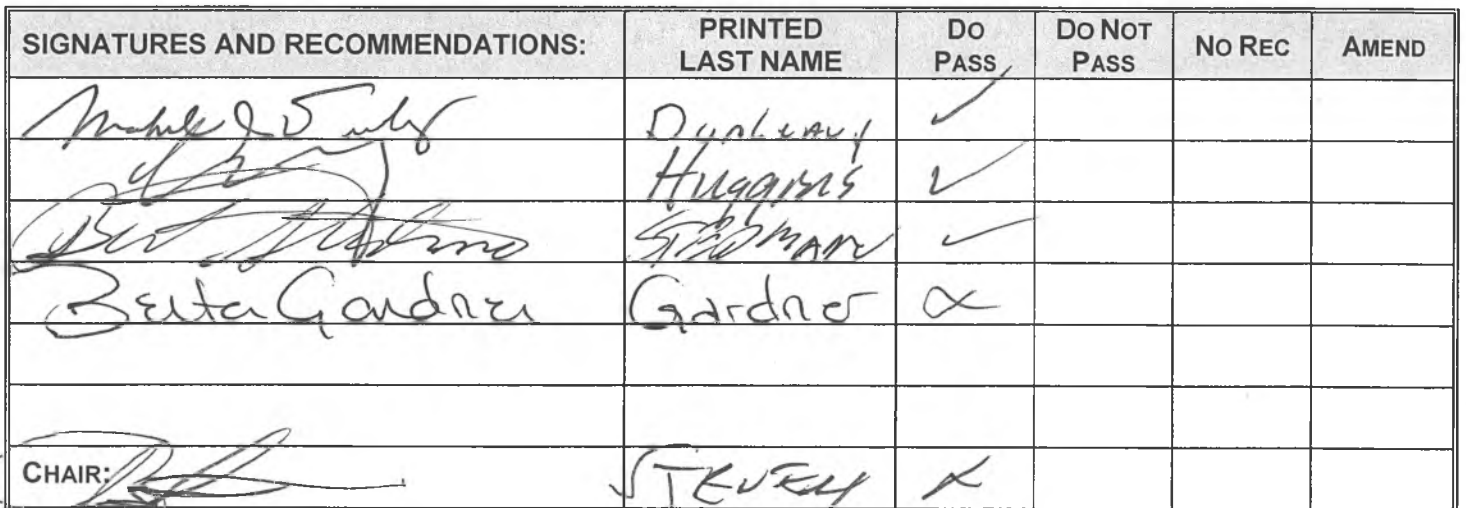 SIGNATURES AND RECOMMENDATIONS: PRINTED LAST NAME DO PASS DO NOT PASS NO REC AMEND
Dunleavy ✓
Huggins ✓
Bert Stedman ✓
Berta Gardner Gardner x
CHAIR: STEVENS x